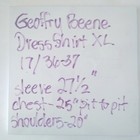 Geoffru Beene
Dress Shirt XL
17/36-37
sleeve 27½"
chest-25" pit to pit
shoulders-20"